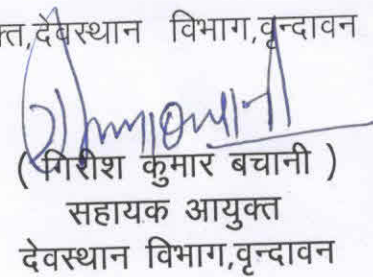 देवस्थान विभाग,वृन्दावन
( गिरीश कुमार बचानी )
सहायक आयुक्त
देवस्थान विभाग,वृन्दावन